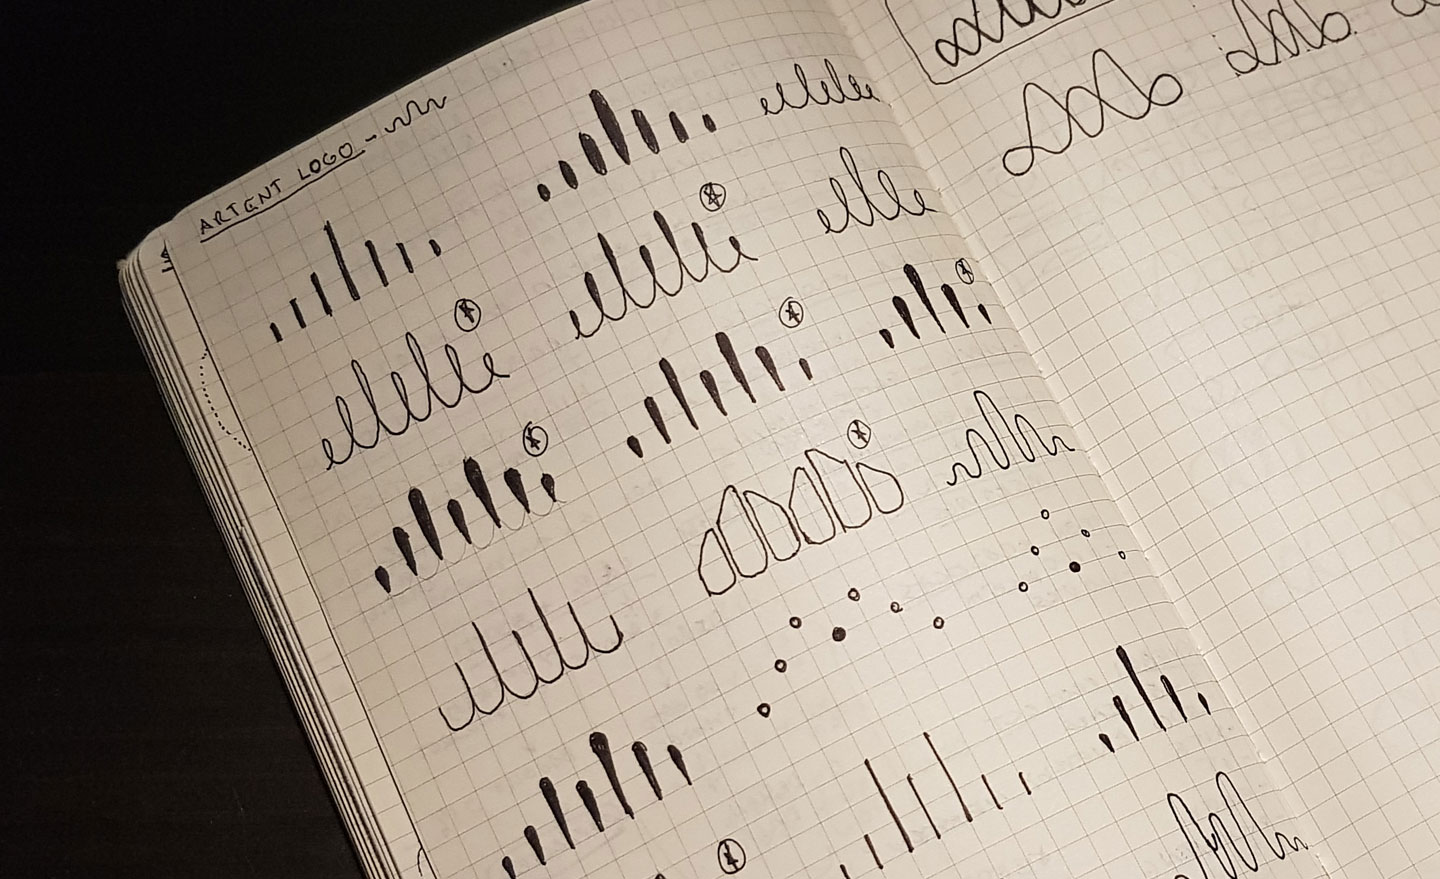 ARTENT LOGO -